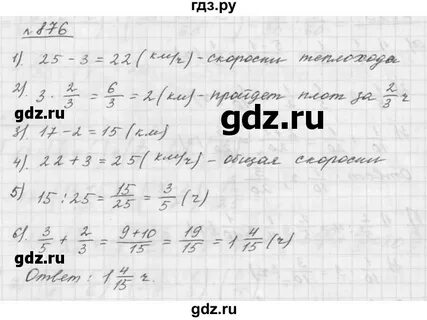 гдз.ру
№ 876
1). 25 - 3 = 22 (км/ч) - скорость теплохода
2). 3 · 2/3 = 6/3 = 2 (км) - пройдет плот за 2/3 ч
гдз.ру
3) 17 - 2 = 15 (км)
4). 22 + 3 = 25 (км/ч) - общая скорость
5) 15 : 25 = 15/25 = 3/5 (ч)
6). 3/5 + 2/3 = 9+10/15 = 19/15 = 1 4/15 (ч)
Ответ: 1 4/15 ч.
гдз.ру
gdz.ru
gdz.ru
gdz.ru